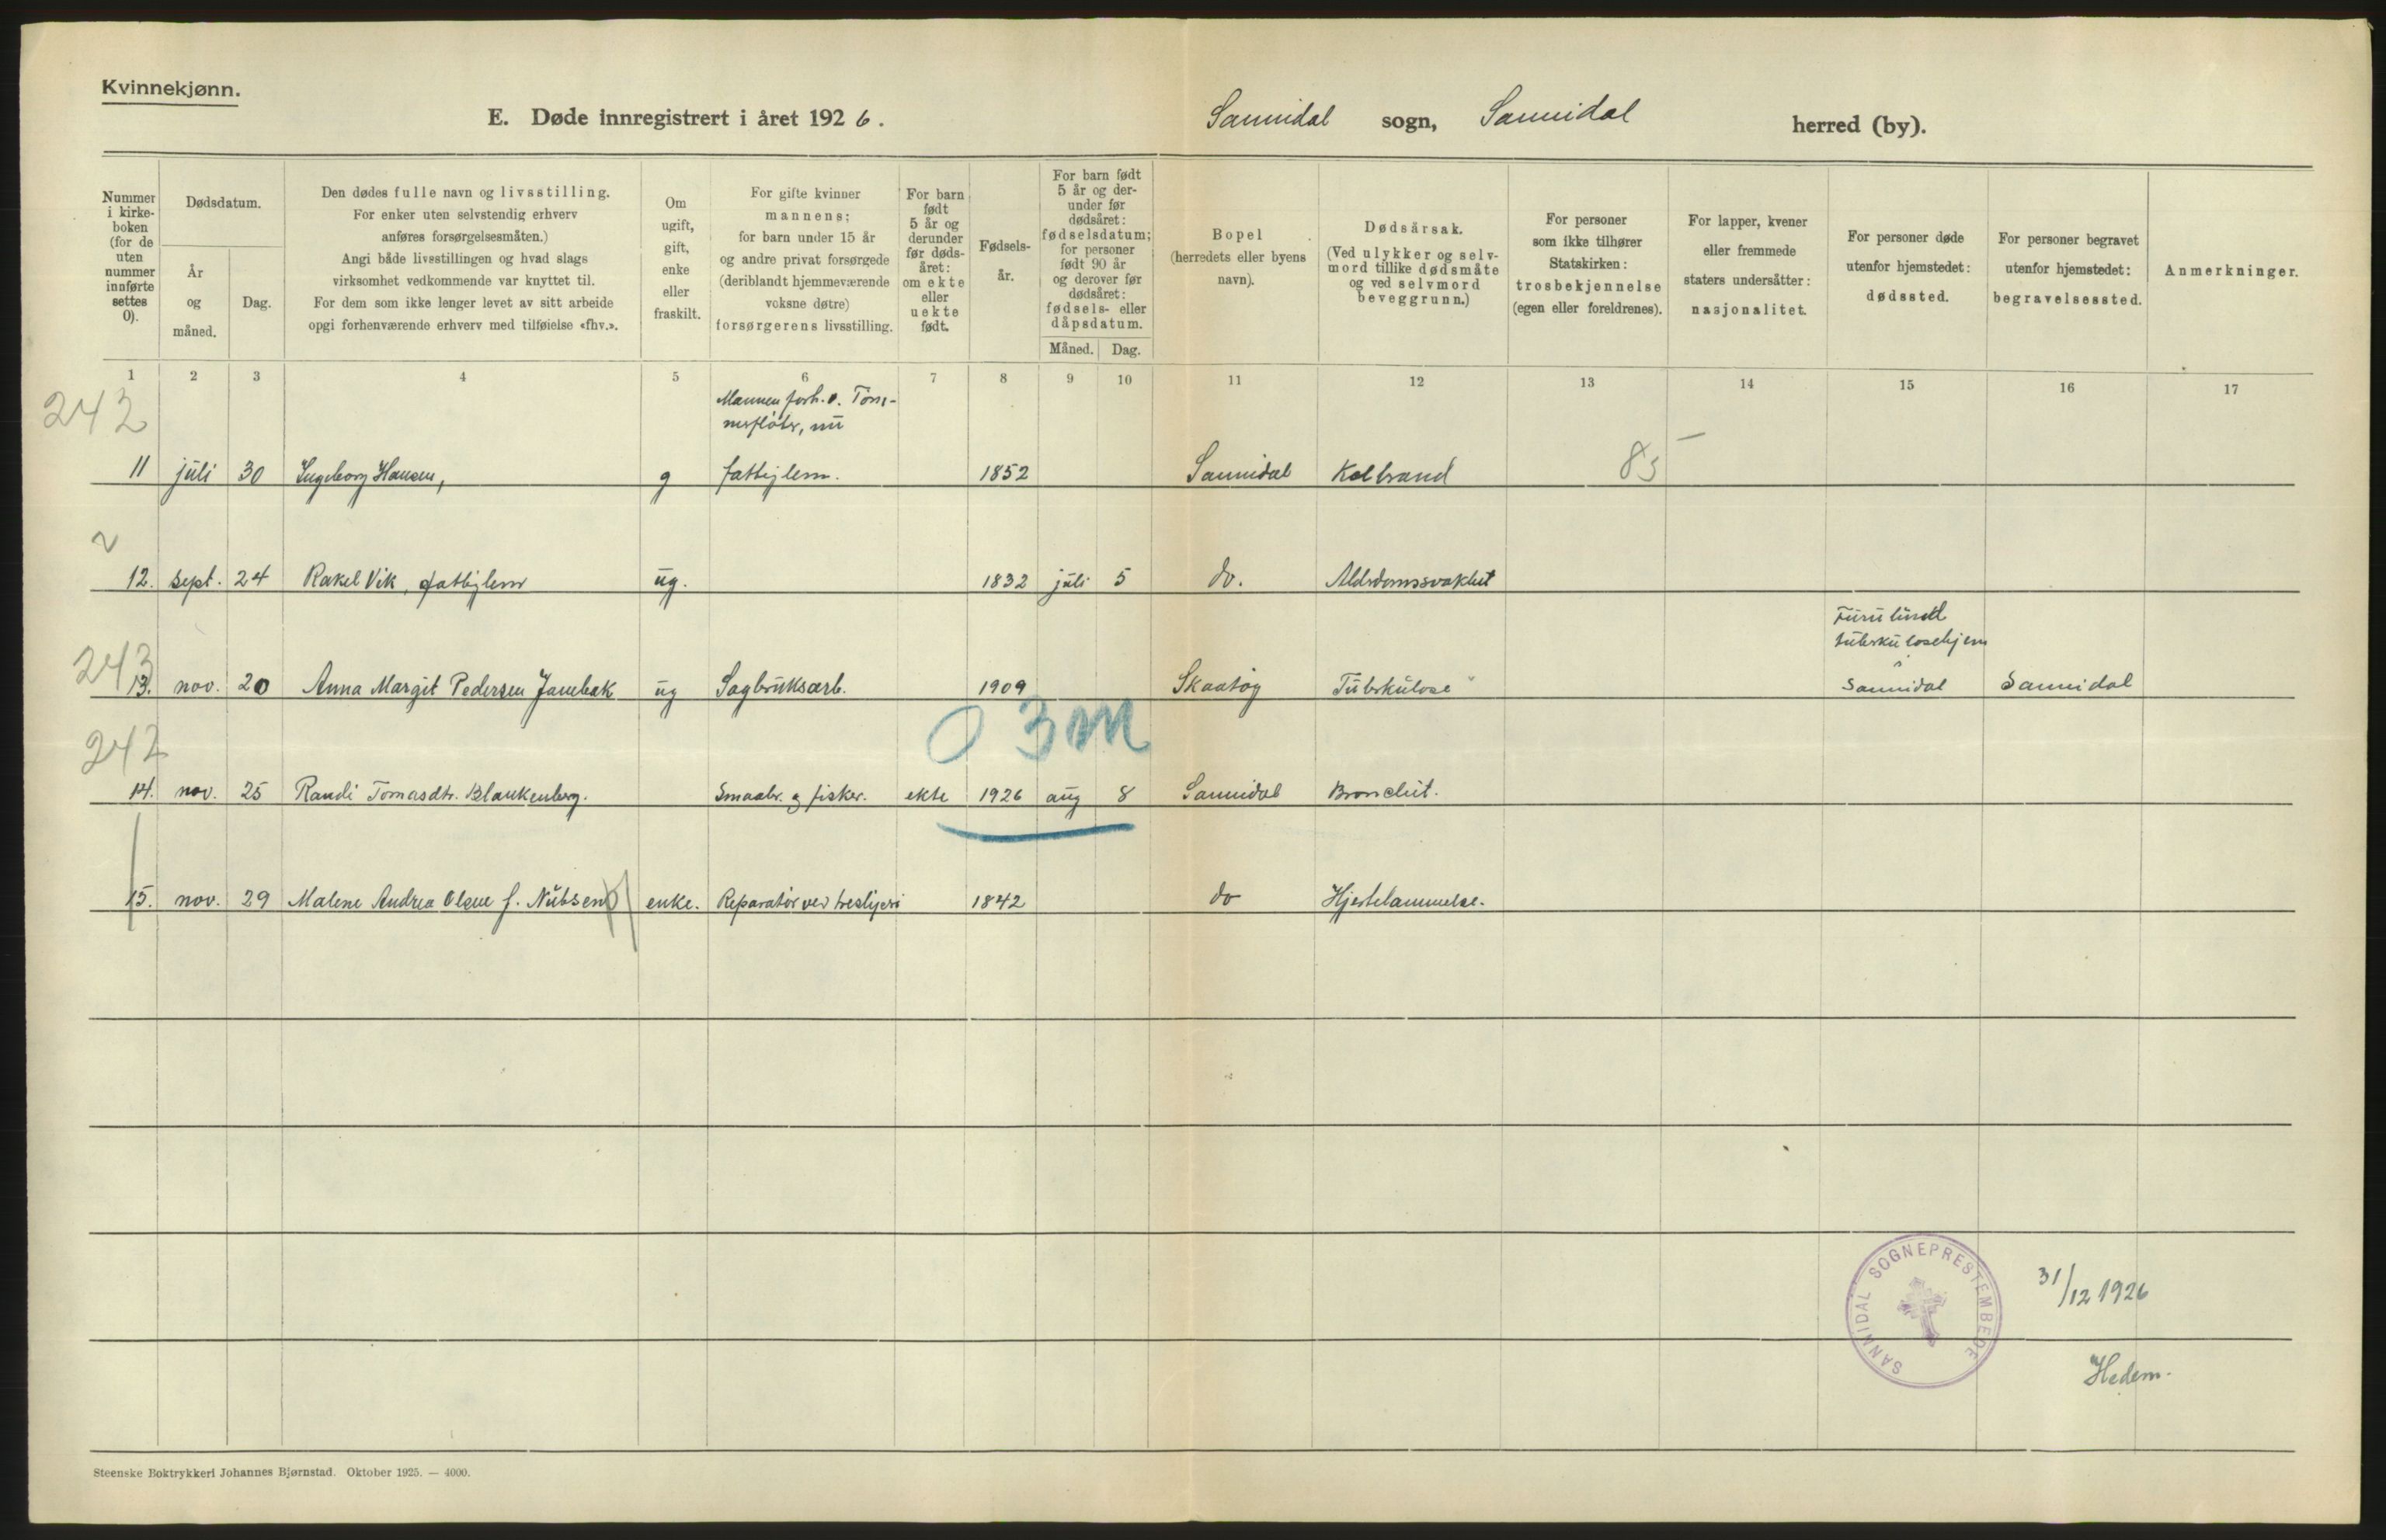 Kvinnekjønn.
E. Døde innregistrert i året 1926.
Sannidal sogn, Sannidal herred (by).
Nummer i kirke-boken (for de uten nummer innførte settes 0).
Dødsdatum.
År og måned.
Dag.
Den dødes fulle navn og livsstilling.
For enker uten selvstendig erhverv
anføres forsørgelsesmåten.)
Angi både livsstillingen og hvad slags
virksomhet vedkommende var knyttet til.
For dem som ikke lenger levet av sitt arbeide
opgi forhenværende erhverv med tilføielse «fhv.».
Om
ugift,
gift,
enke
eller
fraskilt.
For gifte kvinner
mannens;
for barn under 15 år
og andre privat forsørgede
(deriblandt hjemmeværende
voksne døtre)
forsørgerens livsstilling.
For barn
født
5 år og
derunder
før døds-
året:
om ekte
eller
uekte
født.
Fødsels-
år.
For barn født
5 år og der-
under før
dødsåret:
fødselsdatum;
for personer
født 90 år
og derover før
dødsåret:
fødsels- eller
dåpsdatum.
Måned. Dag.
Bopel
(herredets eller byens
navn).
Dødsårsak.
(Ved ulykker og selv-
mord tillike dødsmåte
og ved selvmord
beveggrunn.)
For personer
som ikke tilhører
Statskirken:
trosbekjennelse
(egen eller foreldrenes).
For lapper, kvener
eller fremmede
staters undersåtter:
nasjonalitet.
For personer døde
utenfor hjemstedet:
dødssted.
For personer begravet
utenfor hjemstedet:
begravelsessted.
Anmerkninger.
1 2 3 4 5 6 7 8 9 10 11 12 13 14 15 16 17
242
Mannen forh. v. Töm-
merfløter, nu
11 juli 30 Ingeborg Hansen, g fattiglem. 1852 Sannidal Kolbrand 85 —
12. sept. 24 Rakel Vik, fattiglem ug. 1832 juli 5 do. Alderdomssvakhet
Furulund
tuberkulosehjem
243
13. nov. 20 Anna Margit Pedersen Janebak ug Sagbruksarb. 1909 Skaatøy Tuberkulose Sannidal Sannidal
0 3m
242
14. nov. 25 Randi Tomasdtr. Blankenberg. Smaabr. og fisker. ekte 1926 aug 8 Sannidal Bronchit.
15. nov. 29 Malene Andrea Olsen f. Nilssen enke. Reparatør ved tresliperi 1842 do Hjertelammelse.
SANNIDAL SOGNEPRESTEMBEDE
31/12 1926
Hedem.
Steenske Boktrykkeri Johannes Bjørnstad. Oktober 1925. — 4000.